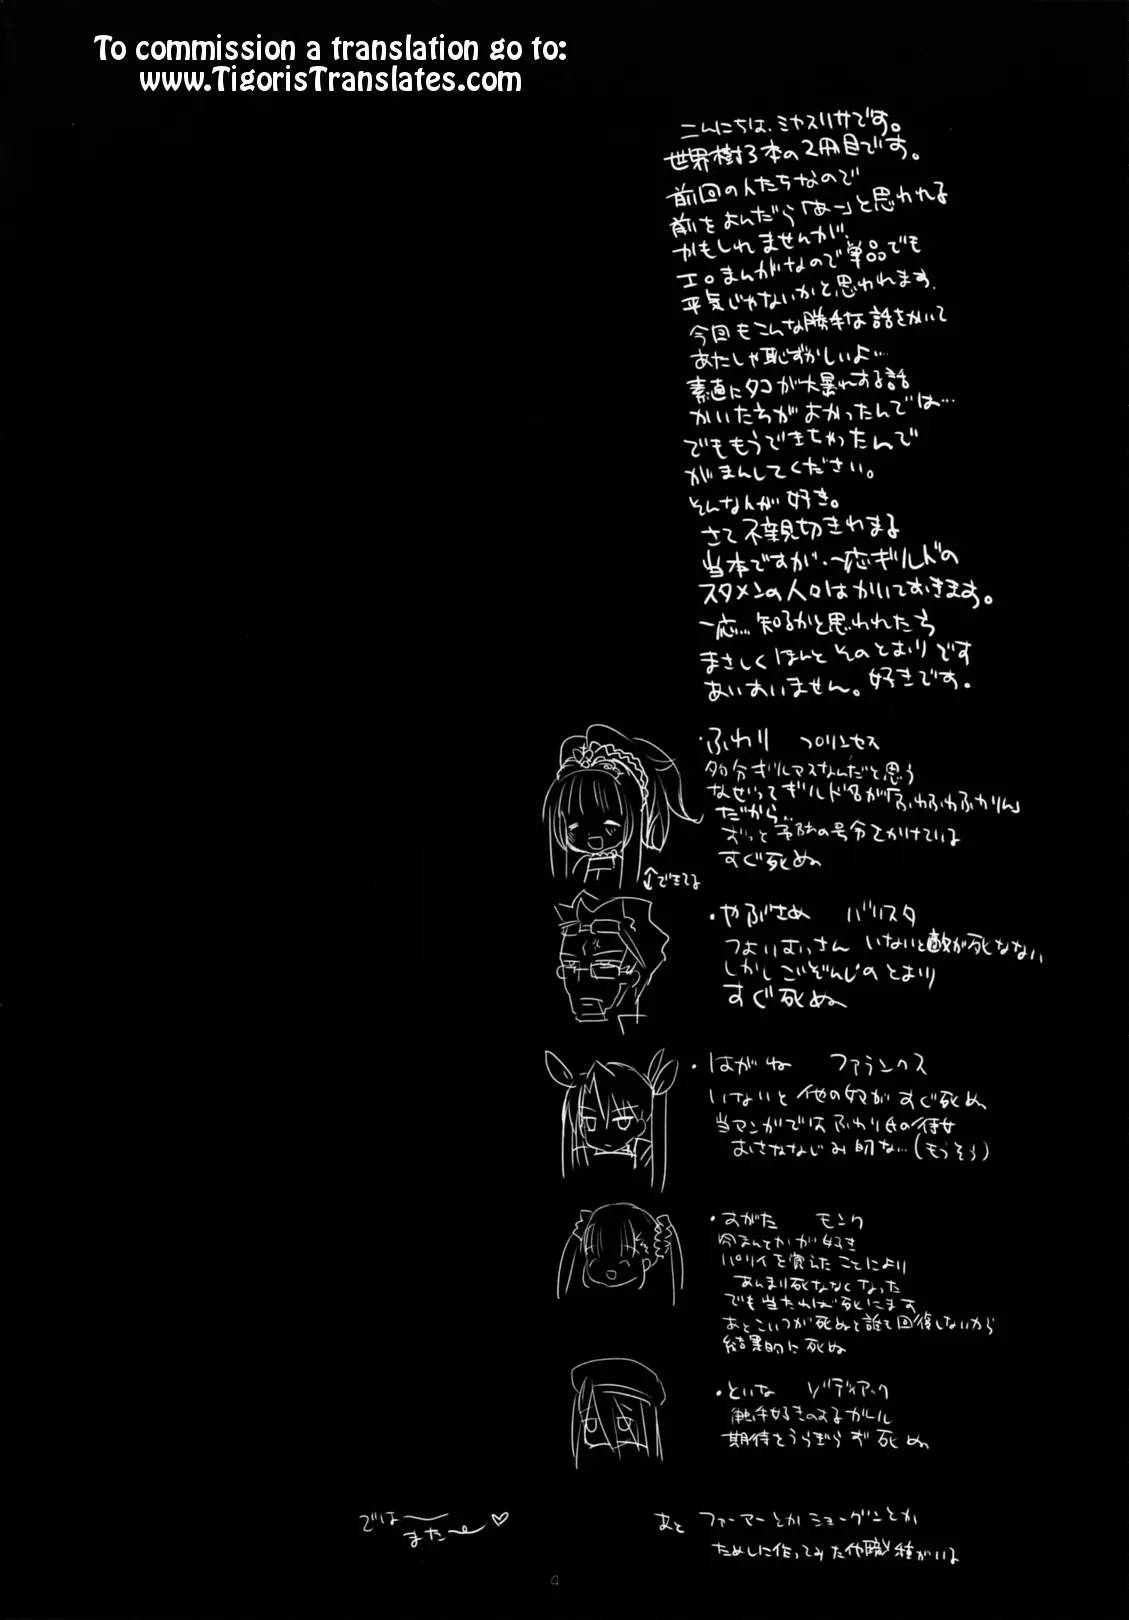 To commission a translation go to:
www.TigorisTranslates.com
こんにちは、ミヤスリサです。
世界樹3本の2冊目です。
前回の人たちなので
前をよんだら「あー」と思われる
かもしれませんが、
エロまんがなので単品でも
平気じゃないかと思われます。
今回もこんな勝手な話をかいて
あたしゃ恥ずかしいよ…
素直にタコが大暴れする話
かいたらよかったんでは…
でももうできちゃったんで
がまんしてください。
そんなんが好き。
さて不親切きわまる
当本ですが、一応ギルドの
スタメンの人々はかいておきます。
一応…知るかと思われたら
まさしくほんとそのとおりです
あいすいません。好きです。
・ふわり プリンセス
多分ギルマスなんだと思う
なぜってギルド名が「ふわふわふわりん」
だから…
ずっと予防の号令をかけている
すぐ死ぬ
↑できてる
・やぶさめ バリスタ
つよいおっさん いないと敵が死なない
しかしごぞんじのとおり
すぐ死ぬ
・はがね ファランクス
いないと他の奴がすぐ死ぬ
当マンガではふわり氏の侍女
おさななじみ的な…(もうそう)
・すがた モンク
肉まんとかが好き
パリイを覚えたことにより
あんまり死ななくなった
でも当たれば死にます
あとこいつが死ぬと誰も回復しないから
結果的に死ぬ
・といな ゾディアック
触手好きのするガール
期待をうらぎらず死ぬ
あと ファーマーとかショーグンとか
ためしに作ってみた他職種がいる
では〜
また〜♡